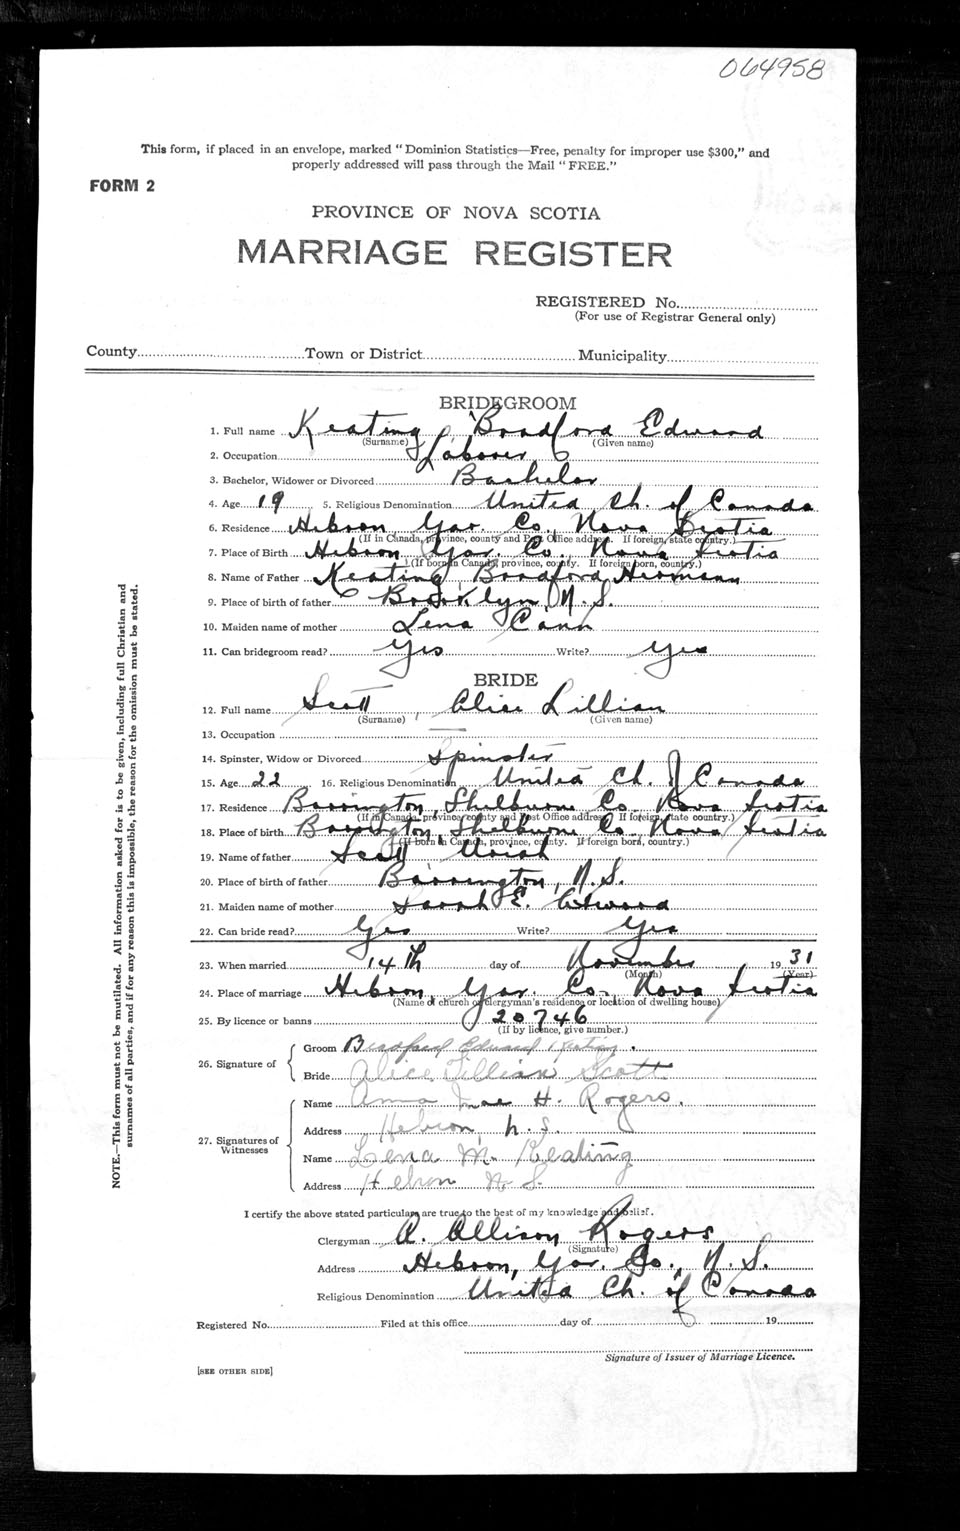 064958
This form, if placed in an envelope, marked "Dominion Statistics—Free, penalty for improper use $300," and
properly addressed will pass through the Mail "FREE."
FORM 2
PROVINCE OF NOVA SCOTIA
MARRIAGE REGISTER
REGISTERED No.
(For use of Registrar General only)
County Town or District Municipality
BRIDEGROOM
1. Full name Keating, Bradford Edward
(Surname) (Given name)
2. Occupation Laborer
3. Bachelor, Widower or Divorced Bachelor
4. Age 19 5. Religious Denomination United Ch. of Canada
6. Residence Hebron Yar. Co. Nova Scotia
(If in Canada, province, county and Post Office address. If foreign, state country.)
7. Place of Birth Hebron, Yar. Co., Nova Scotia
(If born in Canada, province, county. If foreign born, country.)
8. Name of Father Keating, Bradford Herman
9. Place of birth of father Brooklyn, N.S.
10. Maiden name of mother Lena Cann
11. Can bridegroom read? Yes Write? Yes
BRIDE
12. Full name Scott, Alice Lillian
(Surname) (Given name)
13. Occupation —
14. Spinster, Widow or Divorced Spinster
15. Age 22 16. Religious Denomination United Ch. of Canada
17. Residence Barrington, Shelburne Co. Nova Scotia
(If in Canada, province, county and Post Office address. If foreign, state country.)
18. Place of birth Barrington, Shelburne Co. Nova Scotia
(If born in Canada, province, county. If foreign born, country.)
19. Name of father Scott, Uriah
20. Place of birth of father Barrington, N.S.
21. Maiden name of mother Sarah E.
22. Can bride read? Yes Write? Yes
23. When married 14th day of November 1931
(Month) (Year)
24. Place of marriage Hebron, Yar. Co., Nova Scotia
(Name of church or clergyman's residence or location of dwelling house)
25. By licence or banns 20746
(If by licence, give number.)
26. Signature of
Groom Bradford Edward Keating.
Bride Alice Lillian Scott
27. Signatures of Witnesses
Name Anna Mae H. Rogers.
Address Hebron, N.S.
Name Lena M. Keating
Address Hebron N.S.
I certify the above stated particulars are true to the best of my knowledge and belief.
Clergyman A. Allison Rogers
(Signature)
Address Hebron, Yar. Co., N.S.
Religious Denomination United Ch. of Canada
Registered No. Filed at this office day of 19
Signature of Issuer of Marriage Licence.
[SEE OTHER SIDE]
NOTE.—This form must not be mutilated. All information asked for is to be given, including full Christian and
surnames of all parties, and if for any reason this is impossible, the reason for the omission must be stated.